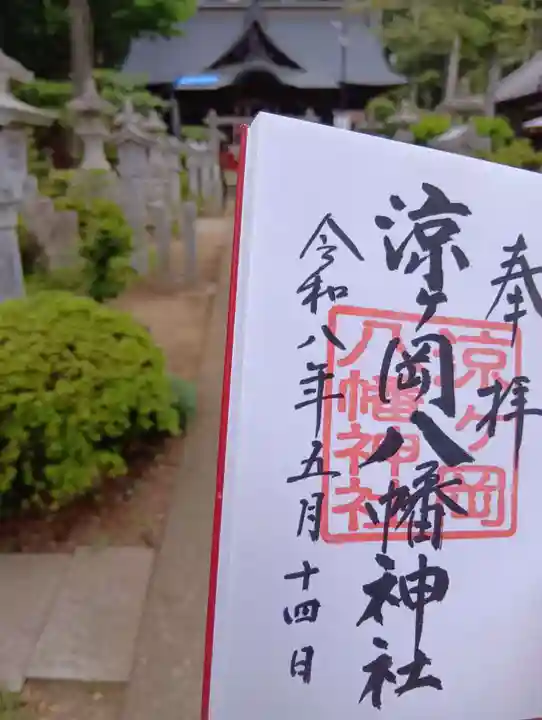 奉拝
涼ヶ岡八幡神社
令和八年五月十四日
涼ヶ岡
八幡神社